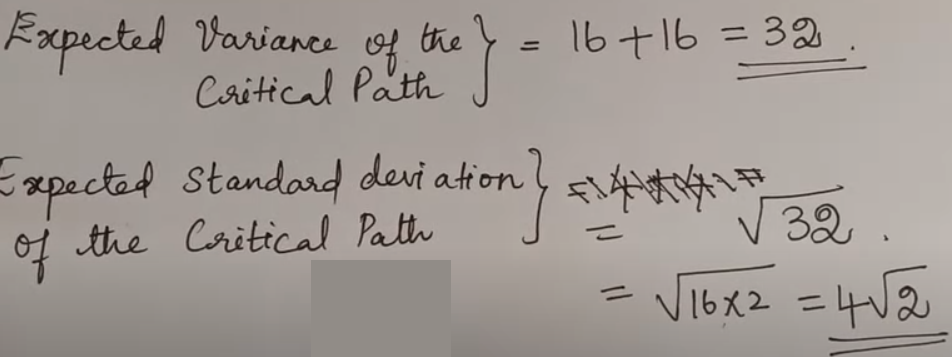 Expected Variance of the } = 16 + 16 = 32.
Critical Path
Expected Standard deviation }
of the Critical Path = √32.
= √16×2 = 4√2